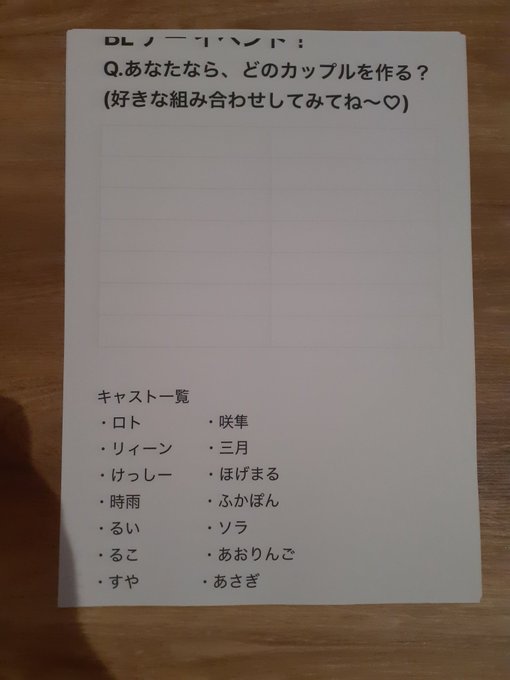 BLデーイベント！
Q.あなたなら、どのカップルを作る？
(好きな組み合わせしてみてね〜♡)
キャスト一覧
・ロト ・咲隼
・リィーン ・三月
・けっしー ・ほげまる
・時雨 ・ふかぽん
・るい ・ソラ
・るこ ・あおりんご
・すや ・あさぎ